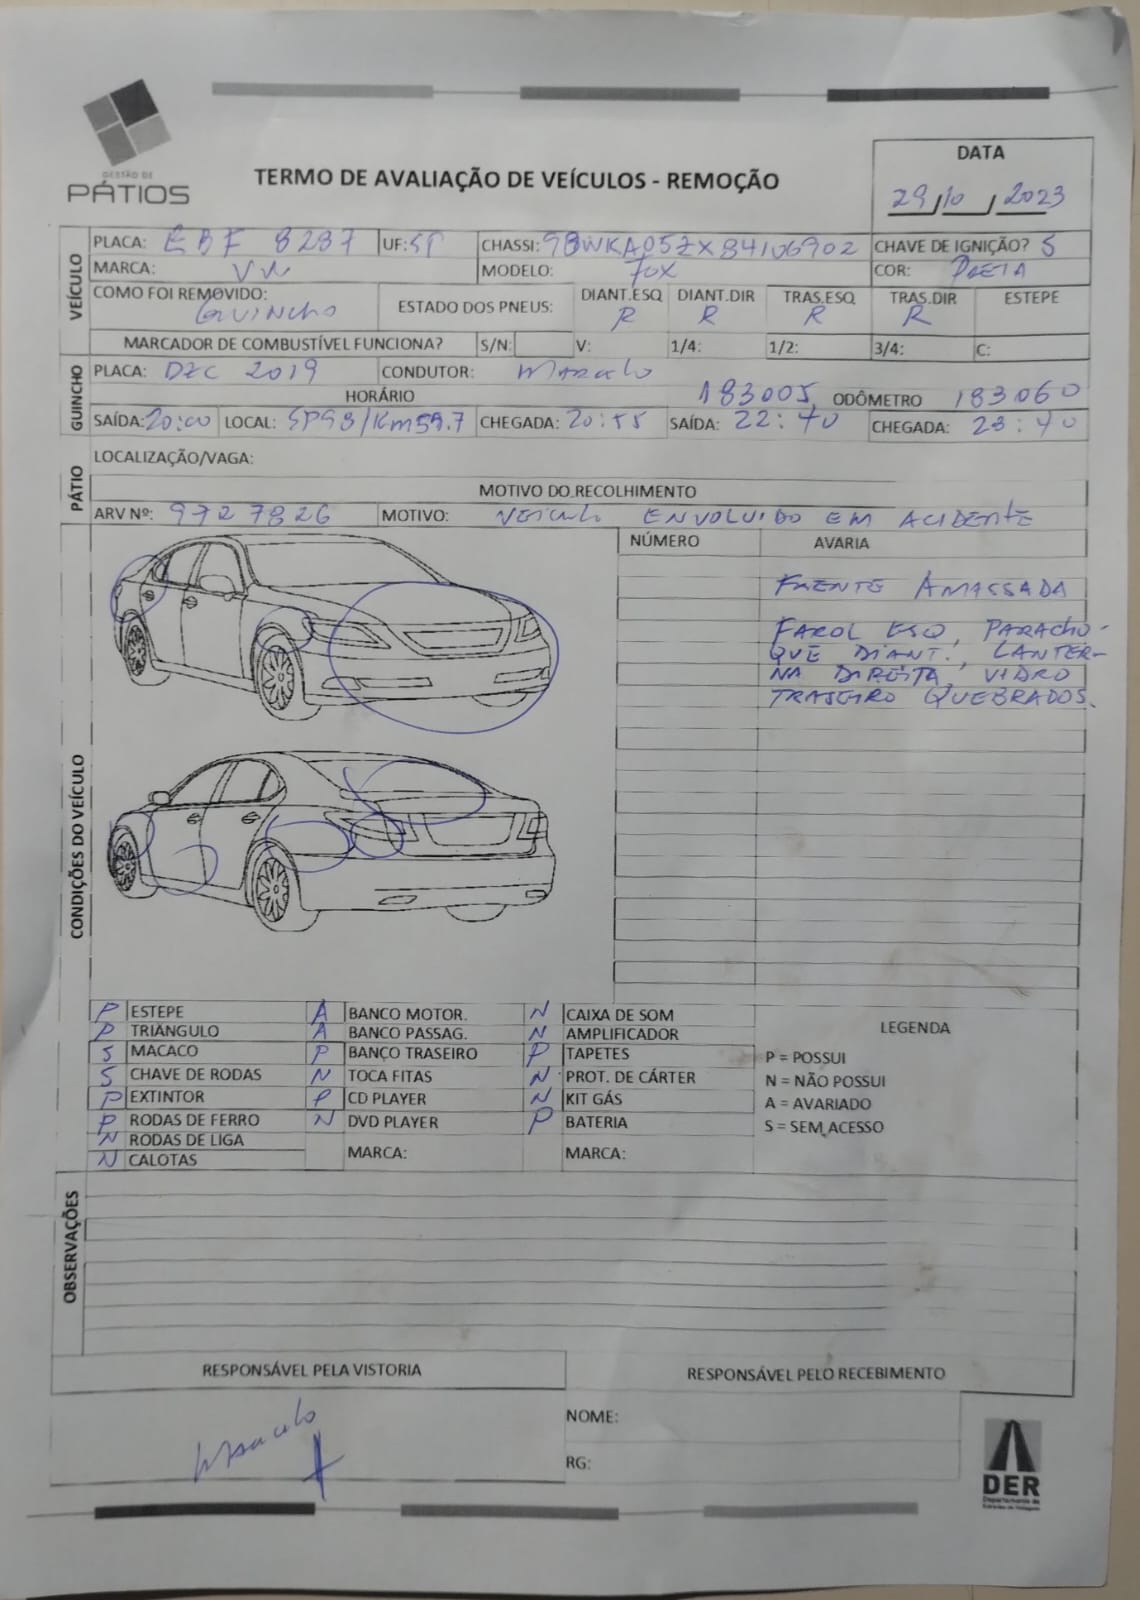 GESTÃO DE
PÁTIOS
TERMO DE AVALIAÇÃO DE VEÍCULOS - REMOÇÃO
DATA
29/10/2023
VEÍCULO
PLACA: EBF 8287 UF: SP CHASSI: 9BWKA05ZX84106902 CHAVE DE IGNIÇÃO? S
MARCA: VW MODELO: FOX COR: PRETA
COMO FOI REMOVIDO: GUINCHO ESTADO DOS PNEUS: DIANT.ESQ R DIANT.DIR R TRAS.ESQ R TRAS.DIR R ESTEPE
MARCADOR DE COMBUSTÍVEL FUNCIONA? S/N: V: 1/4: 1/2: 3/4: C:
GUINCHO
PLACA: DZC 2019 CONDUTOR: Marcelo
HORÁRIO 183005 ODÔMETRO 183060
SAÍDA: 20:00 LOCAL: SP98/Km59.7 CHEGADA: 20:55 SAÍDA: 22:40 CHEGADA: 23:40
PÁTIO
LOCALIZAÇÃO/VAGA:
MOTIVO DO RECOLHIMENTO
ARV Nº: 9727826 MOTIVO: VEICULO ENVOLVIDO EM ACIDENTE
CONDIÇÕES DO VEÍCULO
NÚMERO AVARIA
FRENTE AMASSADA
FAROL ESQ, PARACHO-
QUE DIANT., LANTER-
NA DIREITA, VIDRO
TRASEIRO QUEBRADOS.
P ESTEPE A BANCO MOTOR. N CAIXA DE SOM
P TRIÂNGULO A BANCO PASSAG. N AMPLIFICADOR
S MACACO P BANÇO TRASEIRO P TAPETES
S CHAVE DE RODAS N TOCA FITAS N PROT. DE CÁRTER
P EXTINTOR P CD PLAYER N KIT GÁS
P RODAS DE FERRO N DVD PLAYER P BATERIA
N RODAS DE LIGA MARCA: MARCA:
N CALOTAS
LEGENDA
P = POSSUI
N = NÃO POSSUI
A = AVARIADO
S = SEM ACESSO
OBSERVAÇÕES
RESPONSÁVEL PELA VISTORIA
RESPONSÁVEL PELO RECEBIMENTO
Marcelo
NOME:
RG:
DER
Departamento de
Estradas de Rodagem